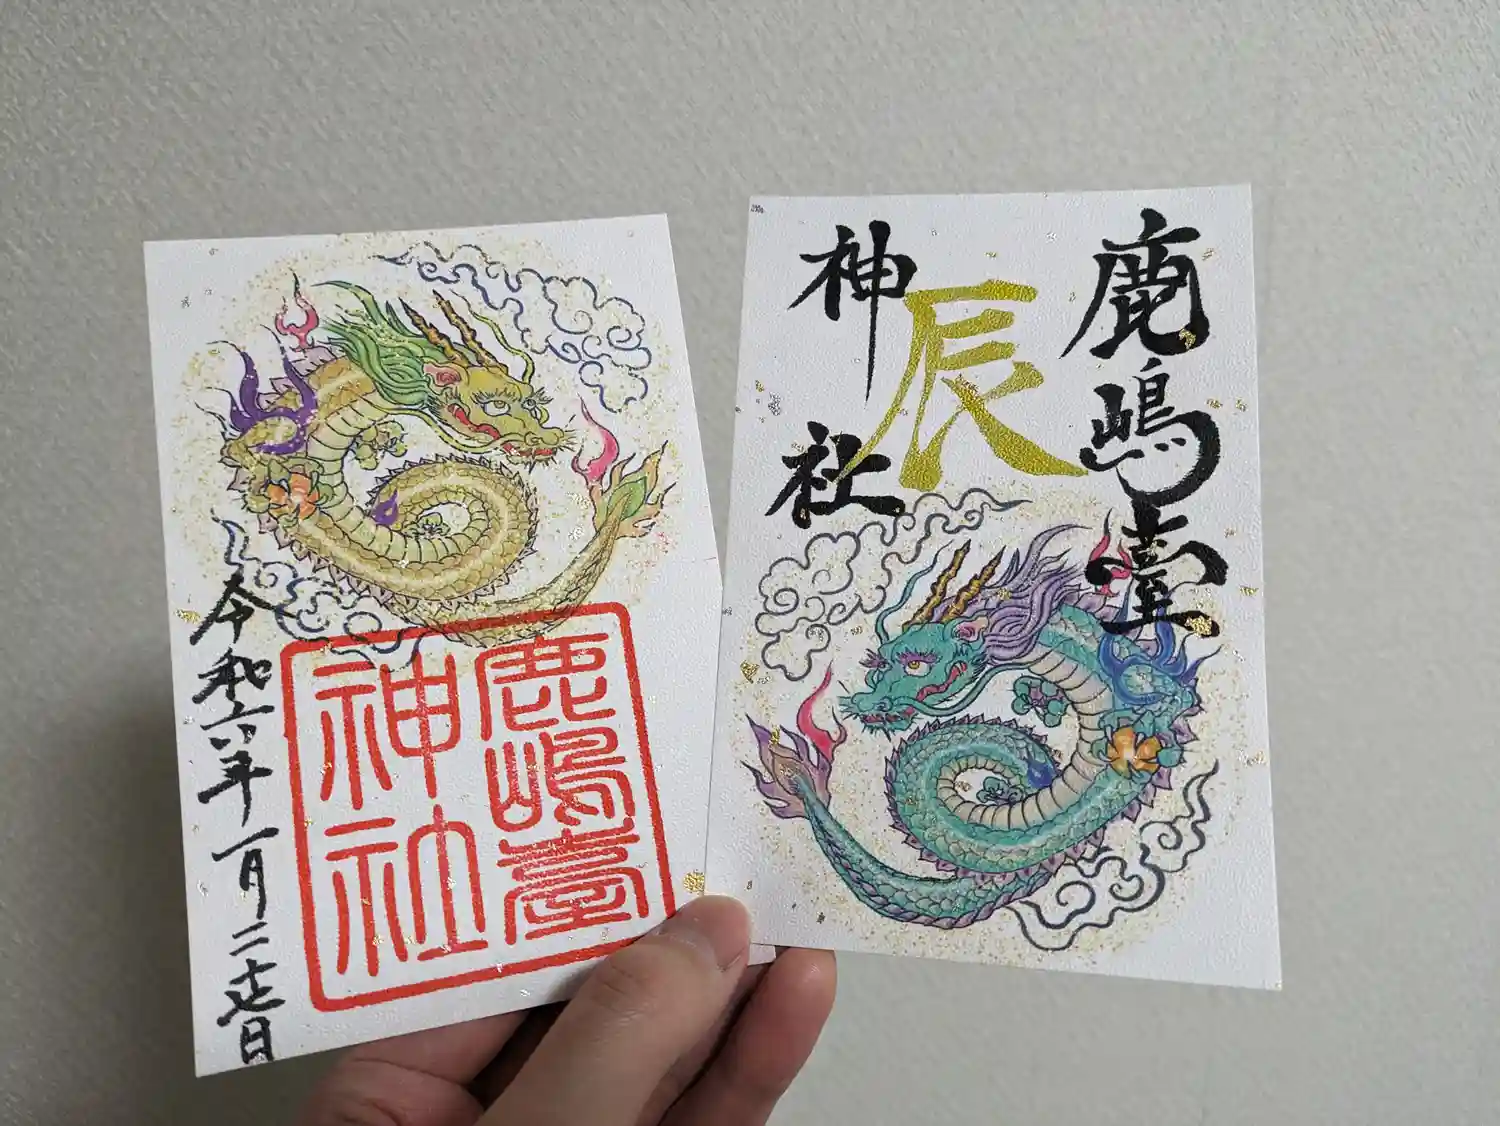 令和六年一月二十七日
鹿嶋臺
神社
鹿嶋臺
辰
神社